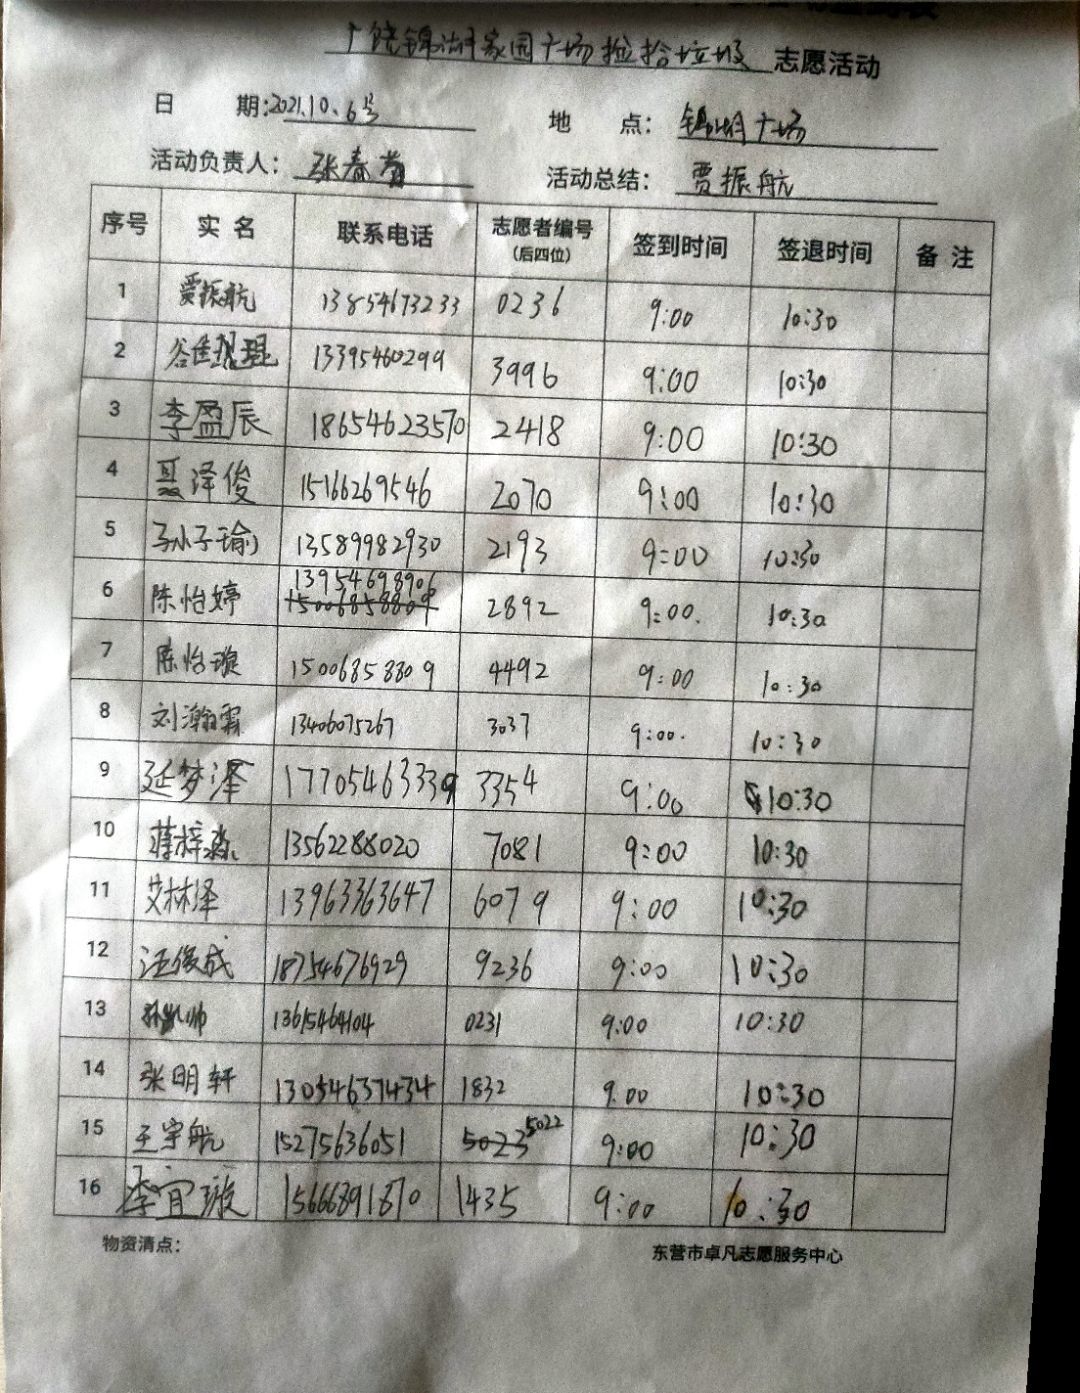 广饶锦湖家园广场捡拾垃圾 志愿活动
日 期：2021.10.6号 地 点：锦湖广场
活动负责人：张春 活动总结：贾振航
序号 实名 联系电话 志愿者编号（后四位） 签到时间 签退时间 备注
1 贾振航 13854673233 0236 9:00 10:30
2 13395460299 3996 9:00 10:30
3 李盈辰 18654623570 2418 9:00 10:30
4 聂泽俊 15166269546 2070 9:00 10:30
5 孙子瑜 13589982930 2193 9:00 10:30
6 陈怡婷 13954698906 15006858809 2892 9:00. 10:30
7 陈怡璇 15006858809 4492 9:00 10:30
8 刘瀚霖 13406075267 3037 9:00. 10:30
9 延梦泽 17705463339 3354 9:00 10:30
10 蒋梓淼 13562288020 7081 9:00 10:30
11 艾林泽 13963363647 6079 9:00 10:30
12 汪俊成 18754676929 9236 9:00 10:30
13 13615464104 0231 9:00 10:30
14 张明轩 13054637434 1832 9:00 10:30
15 王宇航 15275636051 5023 5022 9:00 10:30
16 李宜璇 15666891870 1435 9:00 10:30
物资清点： 东营市卓凡志愿服务中心